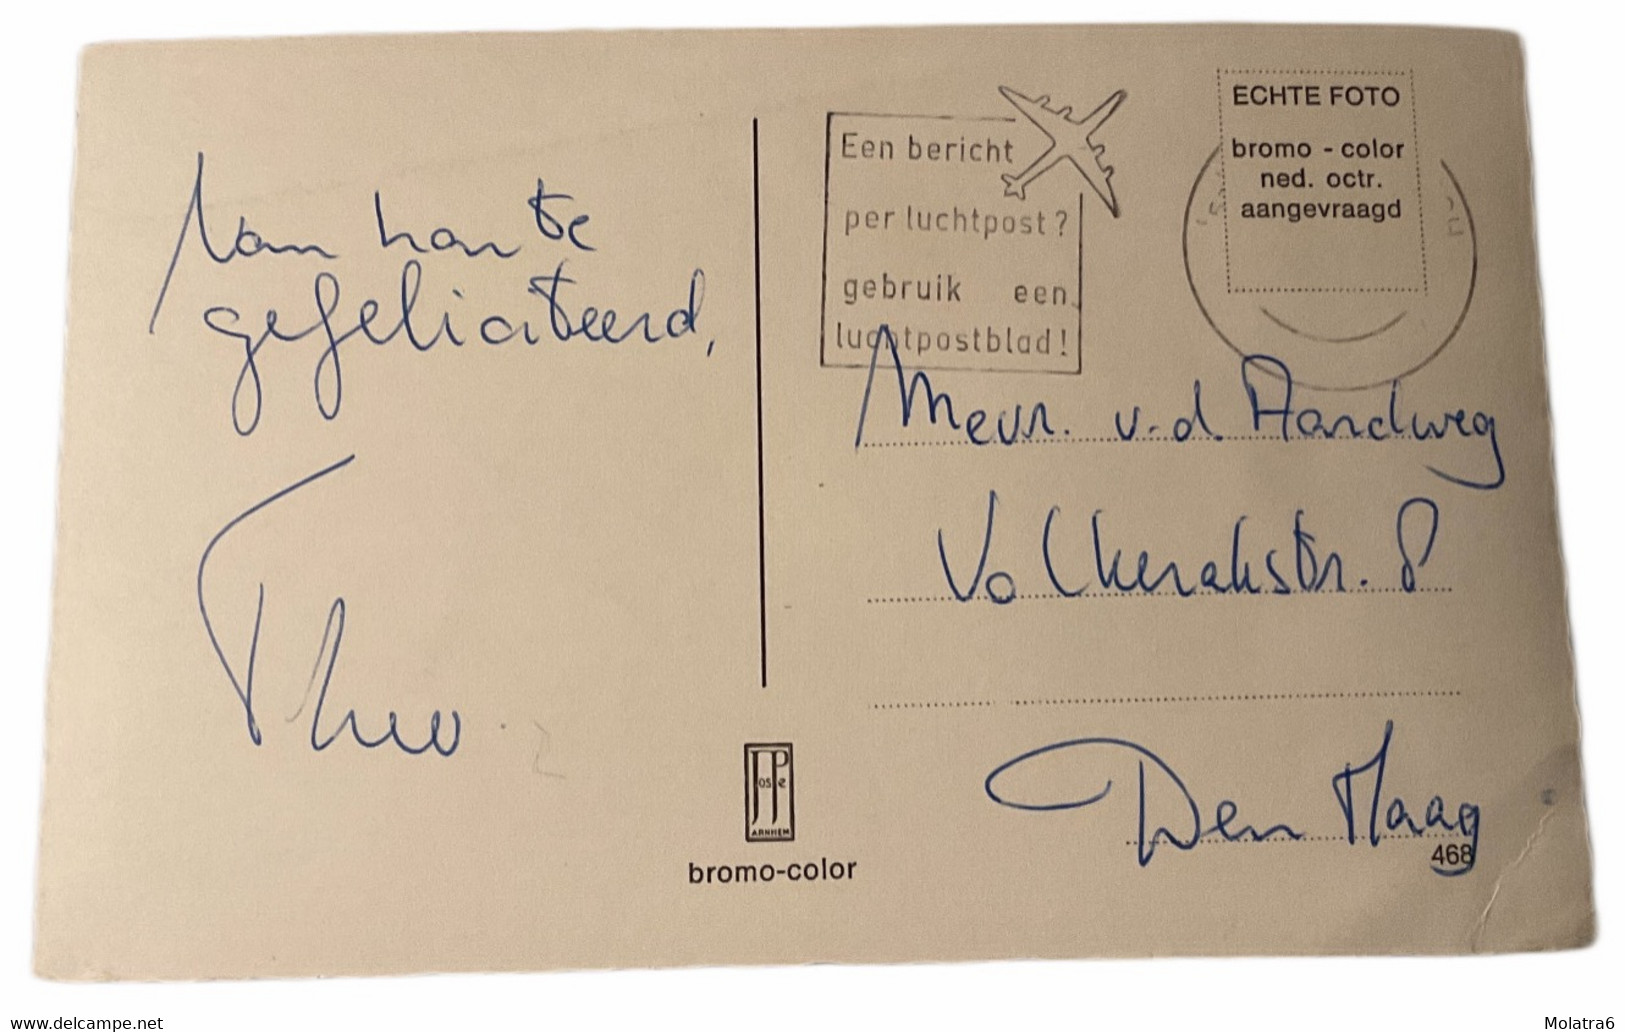 Van harte
gefeliciteerd,
Theo.
Een bericht
per luchtpost?
gebruik een
luchtpostblad!
ECHTE FOTO
bromo - color
ned. octr.
aangevraagd
Mevr. v.d. Aardweg
Volkerakstr. 8
Den Haag
468
JosPe
ARNHEM
bromo-color
www.delcampe.net
Molatra6